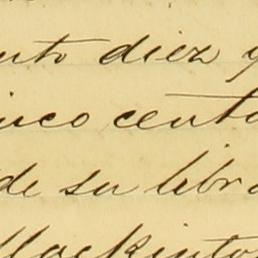 nto diez y
inco centa
de su libra
Mackinto